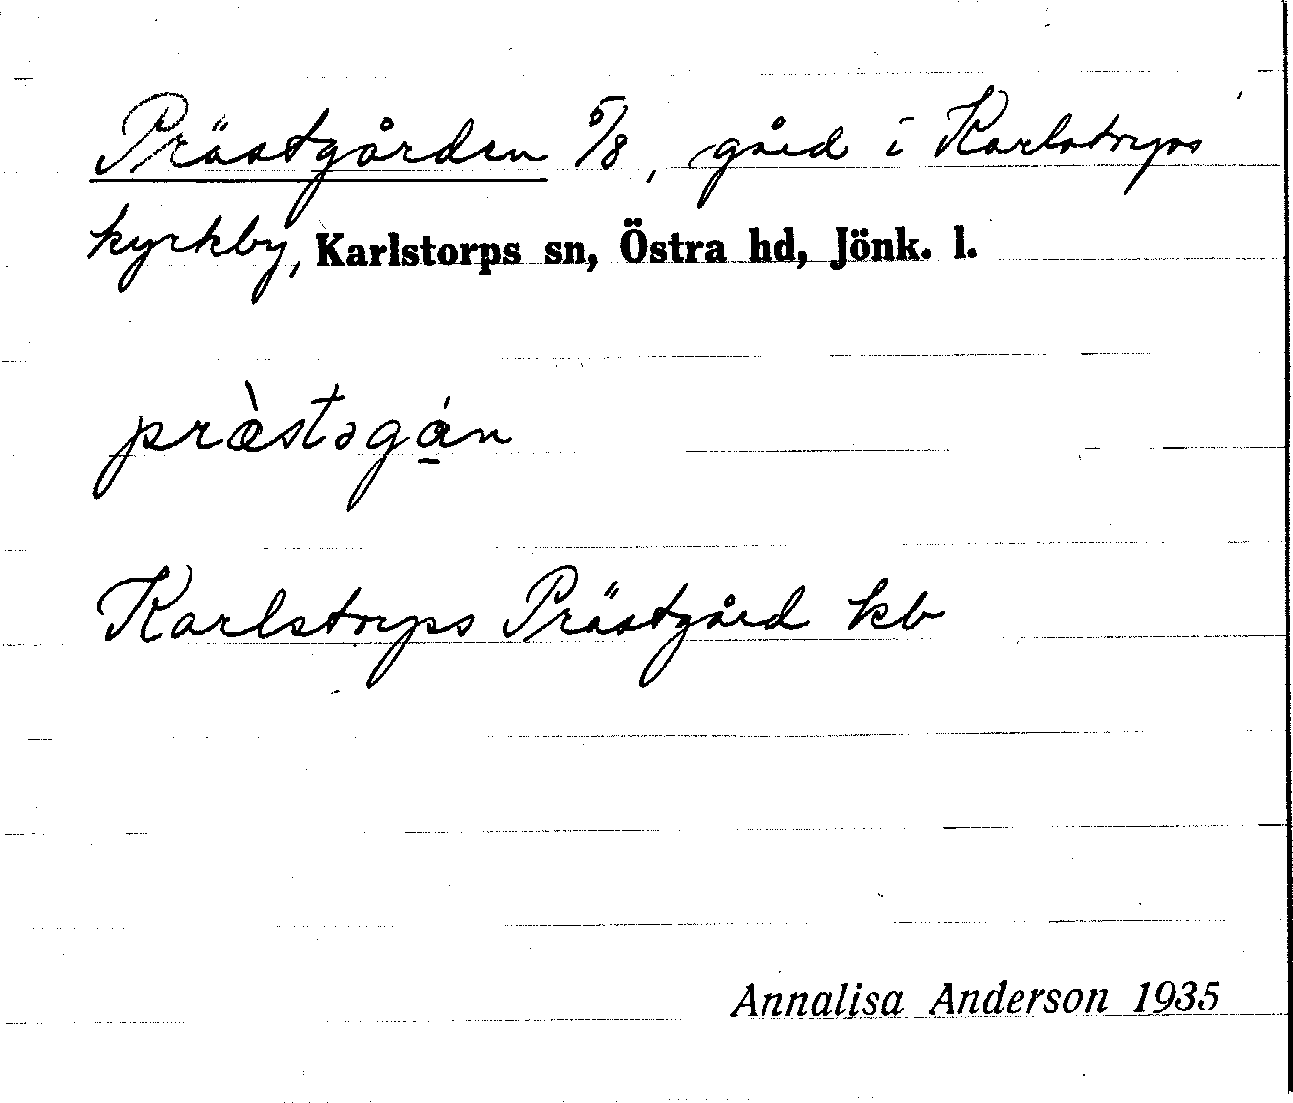 Prästgården 5/8, gård i Karlstorps
kyrkby, Karlstorps sn, Östra hd, Jönk. l.
præ̀stəgá̱n
Karlstorps Prästgård kb
Annalisa Anderson 1935